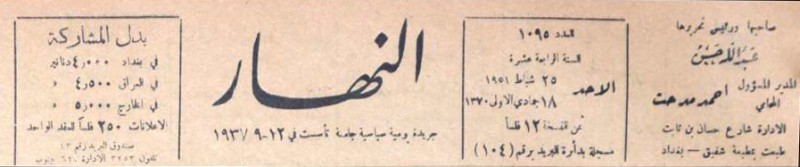 صاحبها ورئيس تحريرها
عبد الله حسن
المدير المسؤول
المحامي
احمد مدحت
الادارة شارع حسان بن ثابت
طبعت بمطبعة شفيق - بغداد
العدد ١٠٩٥
السنة الرابعة عشرة
الاحد
٢٥ شباط ١٩٥١
١٨ جمادي الاولى ١٣٧٠
ثمن النسخة ١٢ فلساً
مسجلة بدائرة البريد برقم (١٠٤)
النهار
جريدة يومية سياسية جامعة تأسست في ١٢-٩-١٩٣٧
بدل المشاركة
في بغداد ٤٫٠٠٠ دنانير
في العراق ٤٫٥٠٠ »
في الخارج ٥٫٠٠٠ »
الاعلانات ٢٥٠ فلساً للعقد الواحد
صندوق البريد رقم ٤٣
تلفون ٣٢٥٣ الادارة